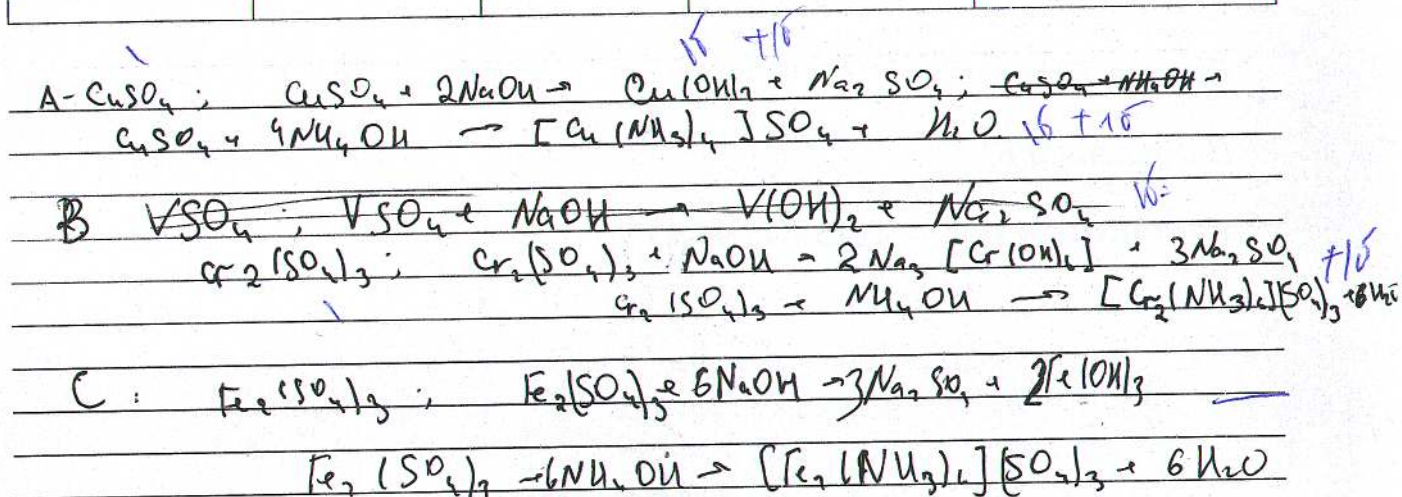 1б +1б
A - CuSO₄ ; CuSO₄ + 2NaOH → Cu(OH)₂ + Na₂SO₄ ; CuSO₄ + NH₄OH →
CuSO₄ + 4NH₄OH → [Cu(NH₃)₄]SO₄ + H₂O 1б +1б
B VSO₄ ; VSO₄ + NaOH → V(OH)₂ + Na₂SO₄ 1б
Cr₂(SO₄)₃ ; Cr₂(SO₄)₃ + NaOH = 2Na₃[Cr(OH)₆] + 3Na₂SO₄ +1б
Cr₂(SO₄)₃ + NH₄OH → [Cr₂(NH₃)₆](SO₄)₃ + 6H₂O
C : Fe₂(SO₄)₃ ; Fe₂(SO₄)₃ + 6NaOH → 3Na₂SO₄ + 2Fe(OH)₃
Fe₂(SO₄)₃ + 6NH₄OH → [Fe₂(NH₃)₆](SO₄)₃ + 6H₂O